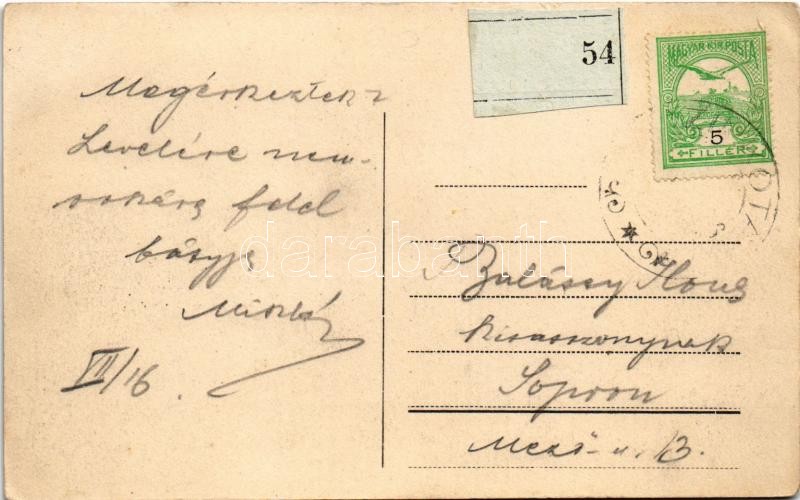 Megérkeztek?
Levelére nem-
sokára felel
bátyja
Miklós
VII/16.
54
MAGYAR KIR. POSTA
5
FILLÉR
Balássy Ilona
kisasszonynak
Sopron
Mező-u. 13.
darabanth